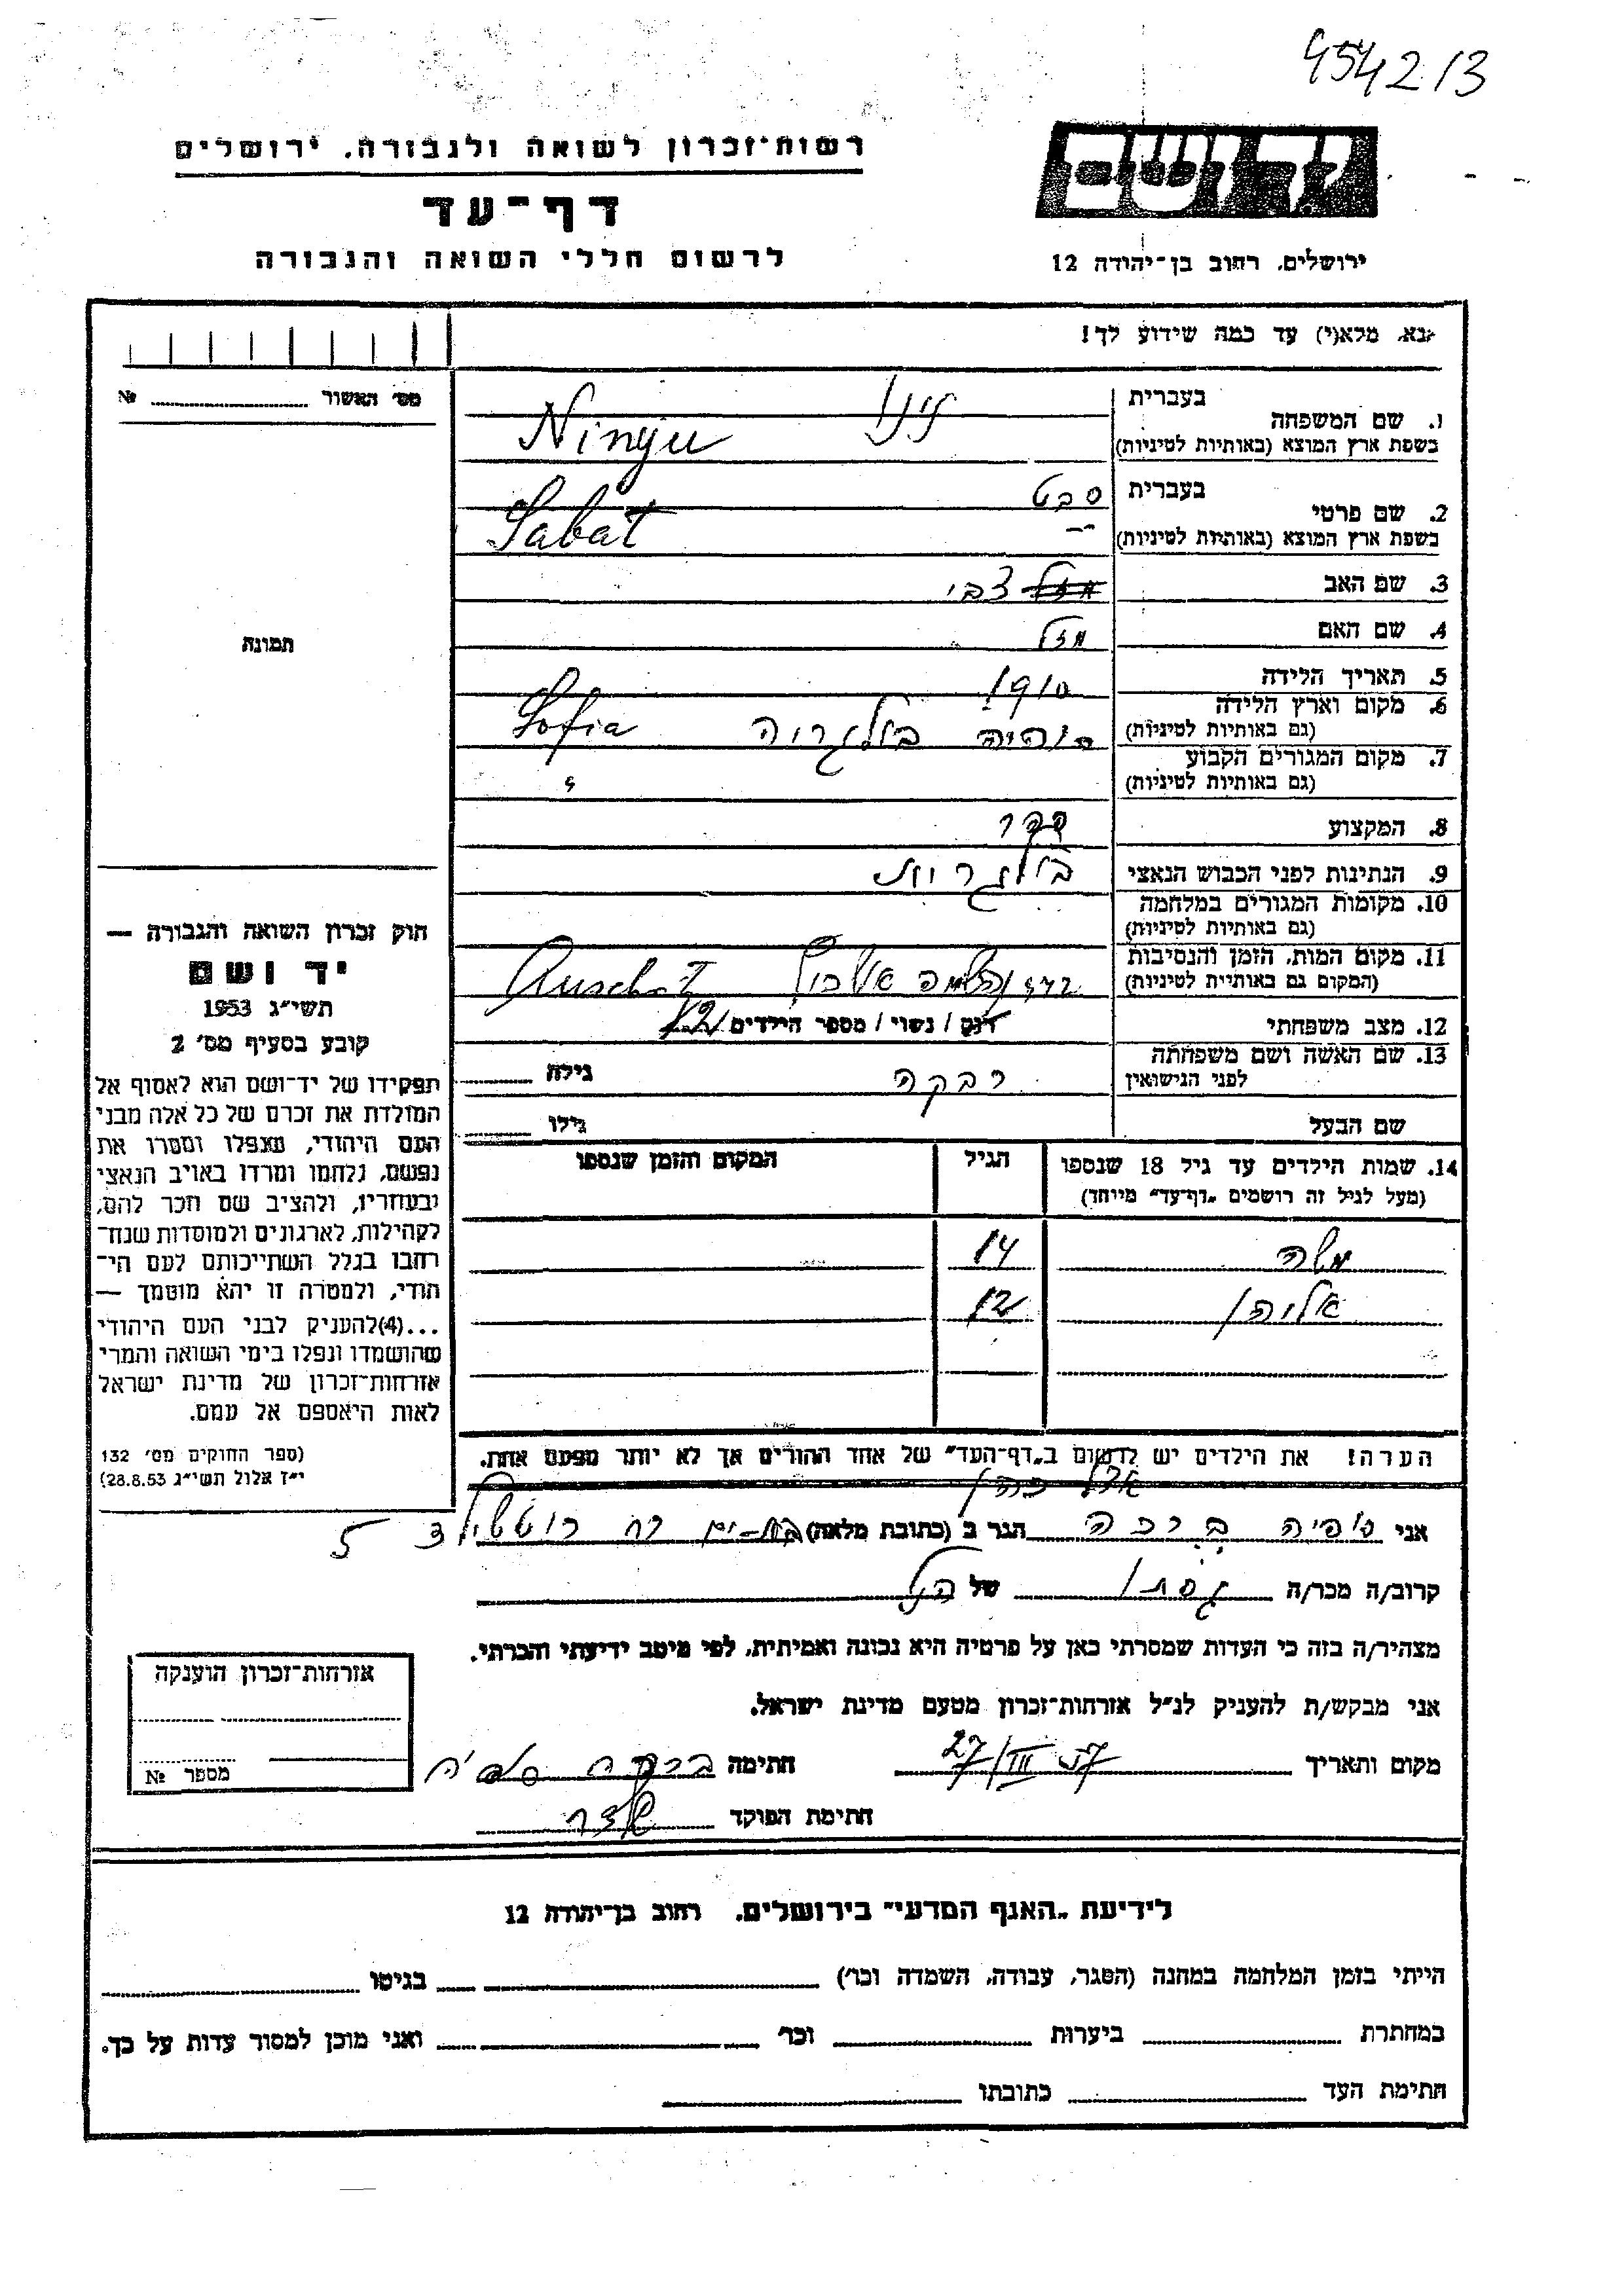 454213
רשות־זכרון לשואה ולגבורה, ירושלים
דף־עד
לרשום חללי השואה והגבורה
ירושלים, רחוב בן־יהודה 12
נא, מלא(י) עד כמה שידוע לך!
מס׳ האשור № 
1. שם המשפחה
בעברית נינו
בשפת ארץ המוצא (באותיות לטיניות) Ninyu
2. שם פרטי
בעברית סבט
בשפת ארץ המוצא (באותיות לטיניות) Sabat
3. שם האב צבי
4. שם האם מזל
5. תאריך הלידה 1910
6. מקום וארץ הלידה
(גם באותיות לטיניות) סופיה בולגריה Sofia
7. מקום המגורים הקבוע
(גם באותיות לטיניות)
8. המקצוע ספר
9. הנתינות לפני הכבוש הנאצי בולגרית
10. מקומות המגורים במלחמה
(גם באותיות לטיניות)
11. מקום המות, הזמן והנסיבות
(המקום גם באותיית לטיניות)
12. מצב משפחתי רווק / נשוי / מספר הילדים 2
13. שם האשה ושם משפחתה
לפני הנישואין רבקה גילה
שם הבעל גילו
14. שמות הילדים עד גיל 18 שנספו
(מעל לגיל זה רושמים „דף־עד״ מייוחד)
הגיל
המקום והזמן שנספו
משה 14
12
הערה! את הילדים יש לרשום ב„דף־העד״ של אחד ההורים אך לא יותר מפעם אחת.
אצל כהן
אני סופיה ברכה הגר ב (כתובת מלאה) בת־ים רח רוטשילד 5
קרוב/ה מכר/ה גיסתו של הנ״ל
מצהיר/ה בזה כי העדות שמסרתי כאן על פרטיה היא נכונה ואמיתית, לפי מיטב ידיעתי והכרתי.
אני מבקש/ת להעניק לנ״ל אזרחות־זכרון מטעם מדינת ישראל.
מקום ותאריך 27/III 57 חתימה
חתימת הפוקד
תמונה
חוק זכרון השואה והגבורה —
יד ושם
תשי״ג 1953
קובע בסעיף מס׳ 2
תפקידו של יד־ושם הוא לאסוף אל
המולדת את זכרם של כל אלה מבני
העם היהודי, שנפלו ומסרו את
נפשם, נלחמו ומרדו באויב הנאצי
ובעוזריו, ולהציב שם וזכר להם,
לקהילות, לארגונים ולמוסדות שנח־
רחבו בגלל השתייכותם לעם הי־
הודי, ולמטרה זו יהא מוסמך —
...(4)להעניק לבני העם היהודי
שהושמדו ונפלו בימי השואה והמרי
אזרחות־זכרון של מדינת ישראל
לאות היאספם אל עמם.
(ספר החוקים מס׳ 132
י״ז אלול תשי״ג 28.8.53)
אזרחות־זכרון הוענקה
מספר №
לידיעת „האגף המדעי״ בירושלים, רחוב בן־יהודה 12
הייתי בזמן המלחמה במחנה (הסגר, עבודה, השמדה וכו׳) בגיטו
במחתרת ביערות וכו׳ ואני מוכן למסור עדות על כך.
חתימת העד כתובתו